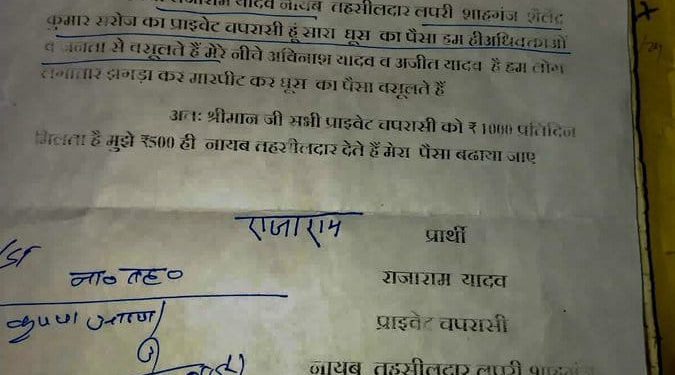 राजाराम यादव नायब तहसीलदार लपरी शाहगंज शैलेंद्र
कुमार सरोज का प्राइवेट चपरासी हूं सारा घूस का पैसा हम ही अधिवक्ताओं
व जनता से वसूलते हैं मेरे नीचे अविनाश यादव व अजीत यादव है हम लोग
लगातार झगड़ा कर मारपीट कर घूस का पैसा वसूलते हैं
अतः श्रीमान जी सभी प्राइवेट चपरासी को ₹1000 प्रतिदिन
मिलता है मुझे ₹500 ही नायब तहसीलदार देते हैं मेरा पैसा बढाया जाए
राजाराम
प्रार्थी
ना० तह०
राजाराम यादव
कृपया
प्राइवेट चपरासी
नायब तहसीलदार लपरी शाहगंज